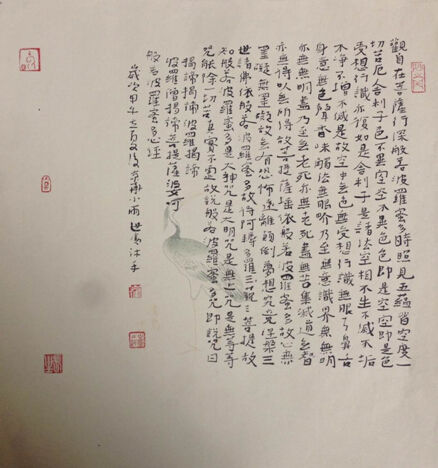 觀自在菩薩行深般若波羅蜜多時照見五蘊皆空度一
切苦厄舍利子色不異空空不異色色即是空空即是色
受想行識亦復如是舍利子是諸法空相不生不滅不垢
不淨不增不減是故空中無色無受想行識無眼耳鼻舌
身意無色聲香味觸法無眼界乃至無意識界無無明
亦無無明盡乃至無老死亦無老死盡無苦集滅道無智
亦無得以無所得故菩提薩埵依般若波羅蜜多故心無
罣礙無罣礙故無有恐怖遠離顛倒夢想究竟涅槃三
世諸佛依般若波羅蜜多故得阿耨多羅三藐三菩提故
知般若波羅蜜多是大神咒是大明咒是無上咒是無等等
咒能除一切苦真實不虛故說般若波羅蜜多咒即說咒曰
揭諦揭諦波羅揭諦
波羅僧揭諦菩提薩婆訶
般若波羅蜜多心經
歲次甲午小雨沐手